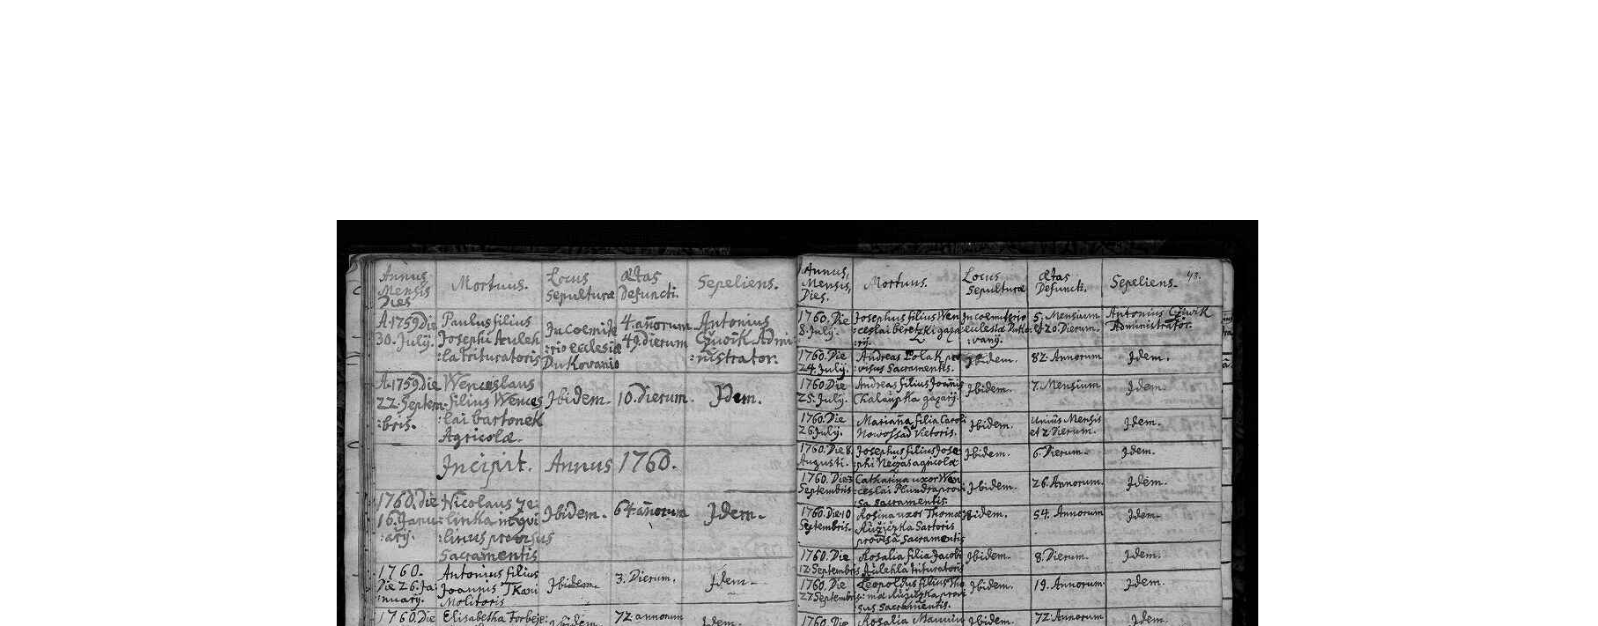 Annus Mensis Dies
Mortuus.
Locus Sepulturæ
Ætas Defuncti.
Sepeliens.
A. 1759 Die
30. Julij.
Paulus filius
Josephi
:la trituratoris
In coemite
:rio ecclesiæ
Dukovanis
4. añorum
49. dierum
Antonius
Admi
:nistrator.
A. 1759 Die
22. Septem
:bris.
Wenceslaus
filius Wences
:lai bartonek
Agricolæ.
Ibidem.
10. Dierum.
Idem.
Incipit. Annus 1760.
1760. Die
16. Janu
:arij.
Nicolaus Je
:linka inqui
:linus provisus
Sacramentis
Ibidem.
64. añorum
Idem.
1760.
Die 26. Ja
:nuarij.
Antonius filius
Joannis
Molitoris
Ibidem.
3. Dierum.
Idem.
1760. Die
Elisabetha
Ibidem.
72. annorum
Idem.
Annus, Mensis, Dies.
Mortuus.
Locus Sepulturæ
Ætas Defuncti.
Sepeliens.
43.
1760. Die
8. Julij.
Josephus filius Wen
:ceslai
In coemiterio
ecclesiæ Duko
:vanij.
5. Mensium
et 20. Dierum.
Antonius
Administrator.
1760. Die
24. Julij.
Andreas Polak pro
:visus Sacramentis.
Ibidem.
82. Annorum
Idem.
1760 Die
25. Julij.
Andreas filius Joañis
Chalaupka gazarij.
Ibidem.
7. Mensium
Idem.
1760. Die
26. Julij.
Mariaña filia Caroli
Nowossad Vietoris.
Ibidem.
Unius Mensis
et 2 Dierum.
Idem.
1760. Die 8.
Augusti.
Josephus filius Jose
:phi
Ibidem.
6 Dierum.
Idem.
1760. Die
Septembris
Catharina uxor Wen
:ceslai
:sa Sacramentis.
Ibidem.
26. Annorum.
Idem.
1760. Die 10
Septembris.
Rosina uxor Thomæ
Růžičzka Sartoris
provisa Sacramentis
Ibidem.
54. Annorum
Idem.
1760. Die
12. Septembris
Rosalia filia Jacobi
trituratoris
Ibidem.
8. Dierum.
Idem.
1760. Die
27 Septembris
Leopoldus filius Tho
:mæ Růžičzka provi
:sus Sacramentis.
Ibidem.
19. Annorum
Idem.
1760. Die
Rosalia
Ibidem.
72. Annorum
Idem.